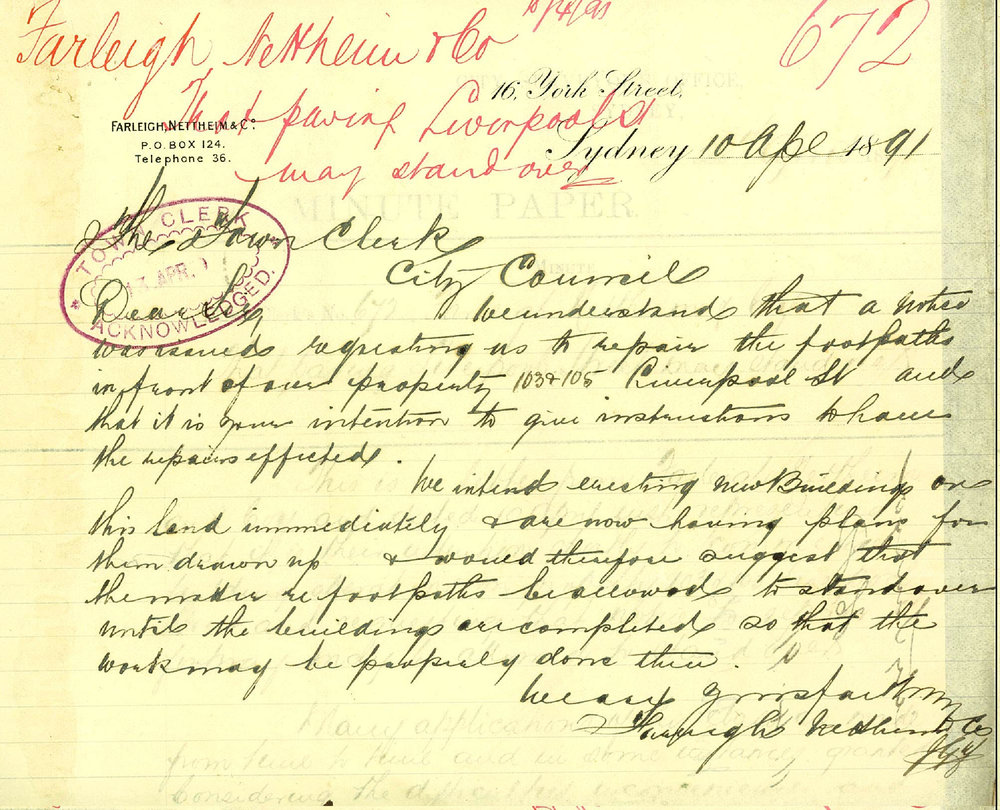 Farleigh Nettheim & Co
672
That paving Liverpool St
may stand over
FARLEIGH, NETTHEIM & Co.
P.O. BOX 124.
Telephone 36.
16, York Street,
Sydney 10 Apl 1891
MINUTE PAPER.
TOWN CLERK
13 APR. 91
ACKNOWLEDGED.
The Town Clerk
City Council
Dear Sir
We understand that a notice
was issued requesting us to repair the footpaths
in front of our property 103 & 105 Liverpool St and
that it is your intention to give instructions to have
the repairs effected.
We intend erecting new Buildings on
this land immediately & are now having plans for
them drawn up & would therefore suggest that
the matter re footpaths be allowed to stand over
until the buildings are completed so that the
work may be properly done then.
We are Yours faithfully
Farleigh Nettheim & Co